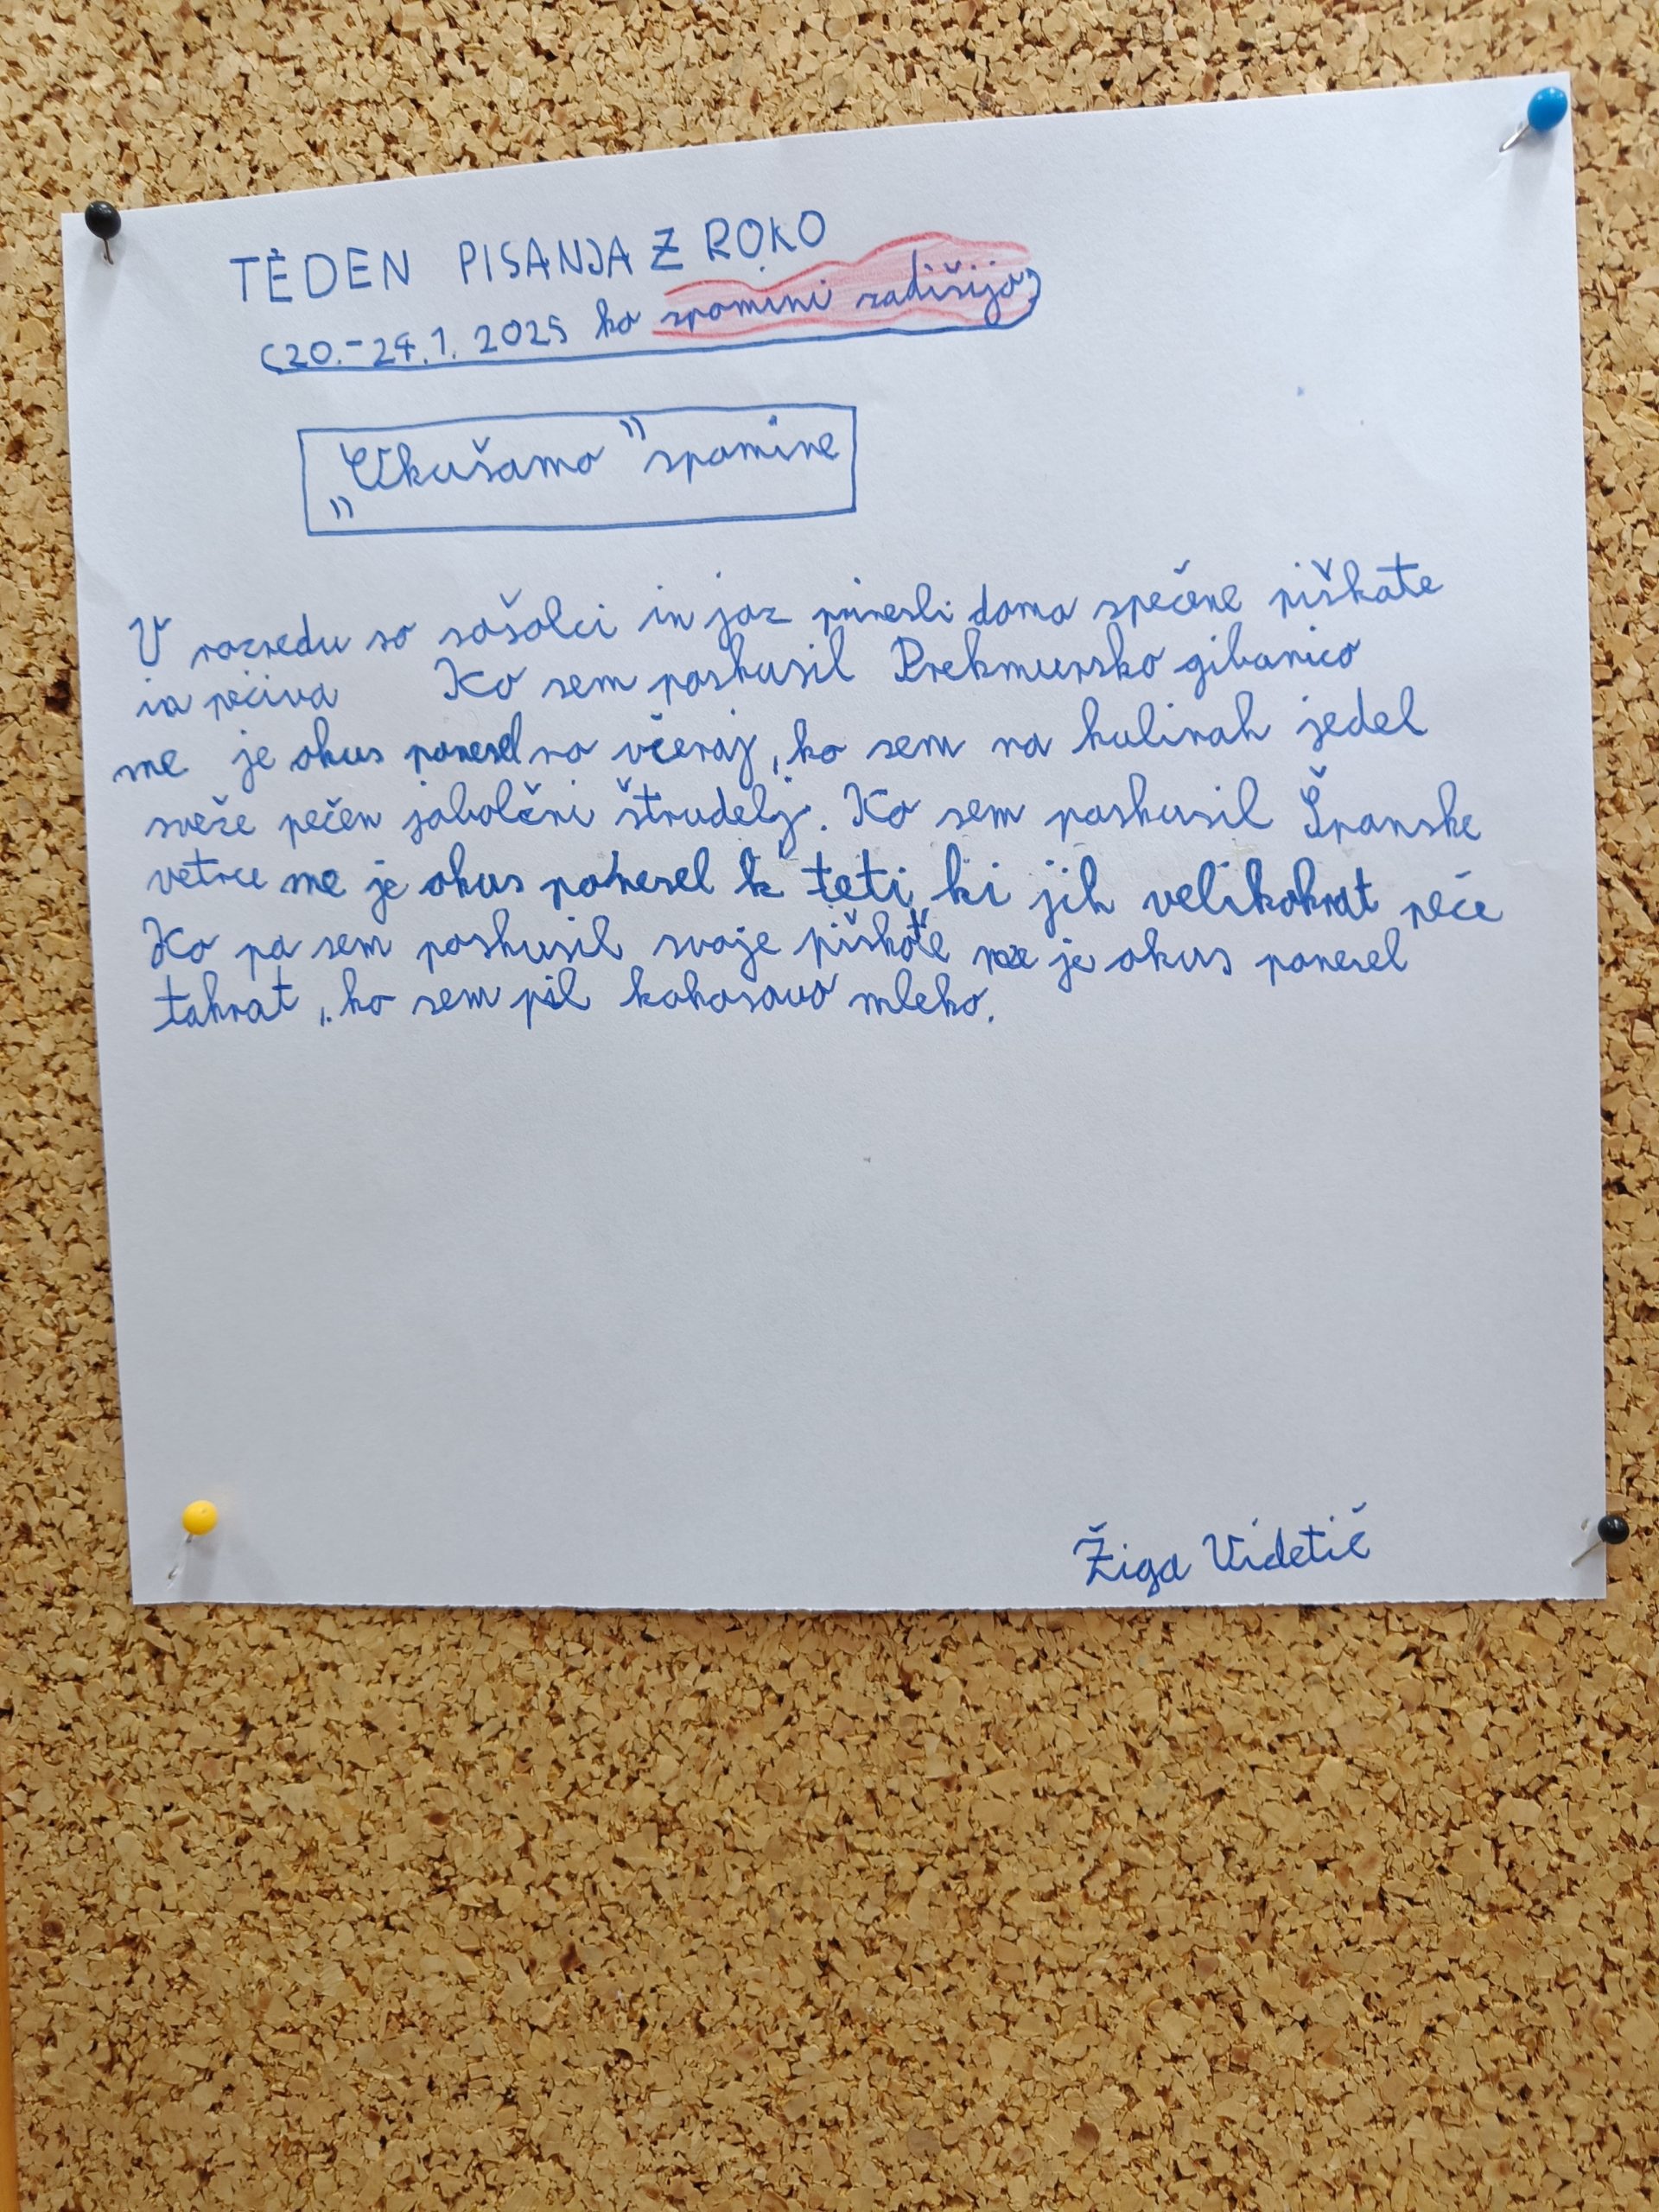 TEDEN PISANJA Z ROKO
(20.-24.1. 2025 ko spomini zadišijo)
„Okušamo" spomine
V razredu so sošolci in jaz prinesli doma spečene piškote
in peciva Ko sem poskusil Prekmursko gibanico
me je okus ponesel na včeraj, ko sem na kulinah jedel
sveže pečen jabolčni štrudelj. Ko sem poskusil Španske
vetrce me je okus ponesel k teti, ki jih velikokrat peče
Ko pa sem poskusil svoje piškote me je okus ponesel
takrat, ko sem pil kokosovo mleko.
Žiga Videtič